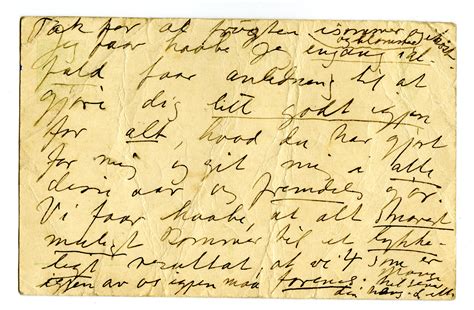 Tak for at frugten isommer og i höst
og blomster
jeg faar haabe jeg engang ial-
fald faar anledning til at
gjøre dig litt godt igjen
for alt, hvad du har gjort
for mig og git mig i alle
disse aar og fremdeles gjør.
Vi faar haabe, at alt snarest
muligt kommer til et lykke-
ligt resultat, at vi 4 som er
igjen av os igjen maa forenes.
Mange hilsener
din